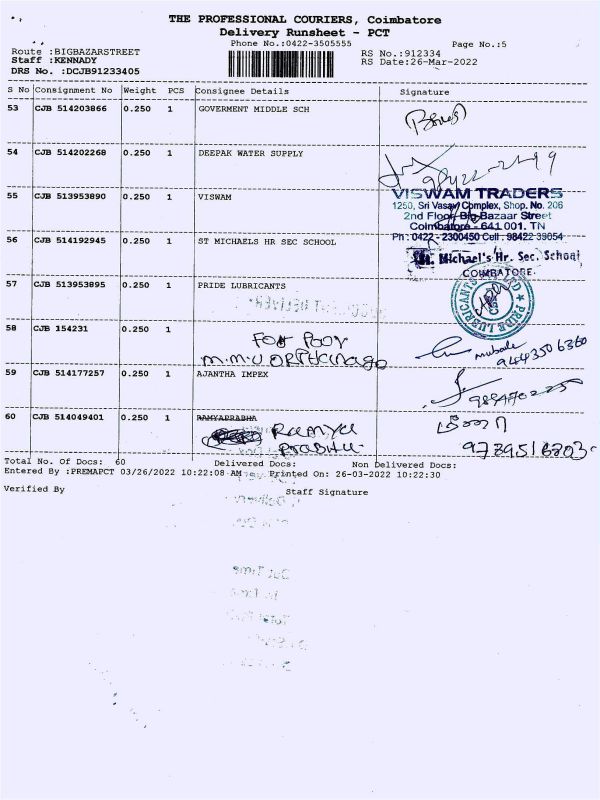 THE PROFESSIONAL COURIERS, Coimbatore
Delivery Runsheet - PCT
Phone No.:0422-3505555
Page No.:5
Route :BIGBAZARSTREET
RS No.:912334
Staff :KENNADY
RS Date:26-Mar-2022
DRS No. :DCJB91233405
S No Consignment No Weight PCS Consignee Details Signature
53 CJB 514203866 0.250 1 GOVERMENT MIDDLE SCH
54 CJB 514202268 0.250 1 DEEPAK WATER SUPPLY
55 CJB 513953890 0.250 1 VISWAM
VISWAM TRADERS
1250, Sri Vasavi Complex, Shop. No. 206
2nd Floor Big Bazaar Street
Coimbatore - 641 001. TN
Ph : 0422 - 2300450 Cell : 98422 39054
56 CJB 514192945 0.250 1 ST MICHAELS HR SEC SCHOOL
St. Michael's Hr. Sec. School
COIMBATORE.
57 CJB 513953895 0.250 1 PRIDE LUBRICANTS
PRIDE LUBRICANTS
58 CJB 154231 0.250 1
For Poor
9443506360
59 CJB 514177257 0.250 1 AJANTHA IMPEX
60 CJB 514049401 0.250 1 RAMYAPRABHA
Ramya
Prabhu
9789516203
Total No. Of Docs: 60 Delivered Docs: Non Delivered Docs:
Entered By :PREMAPCT 03/26/2022 10:22:08 AM Printed On: 26-03-2022 10:22:30
Verified By Staff Signature